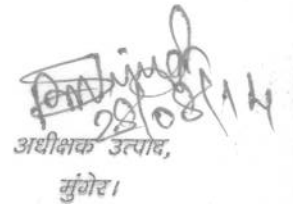 28/08/14
अधीक्षक उत्पाद,
मुंगेर।